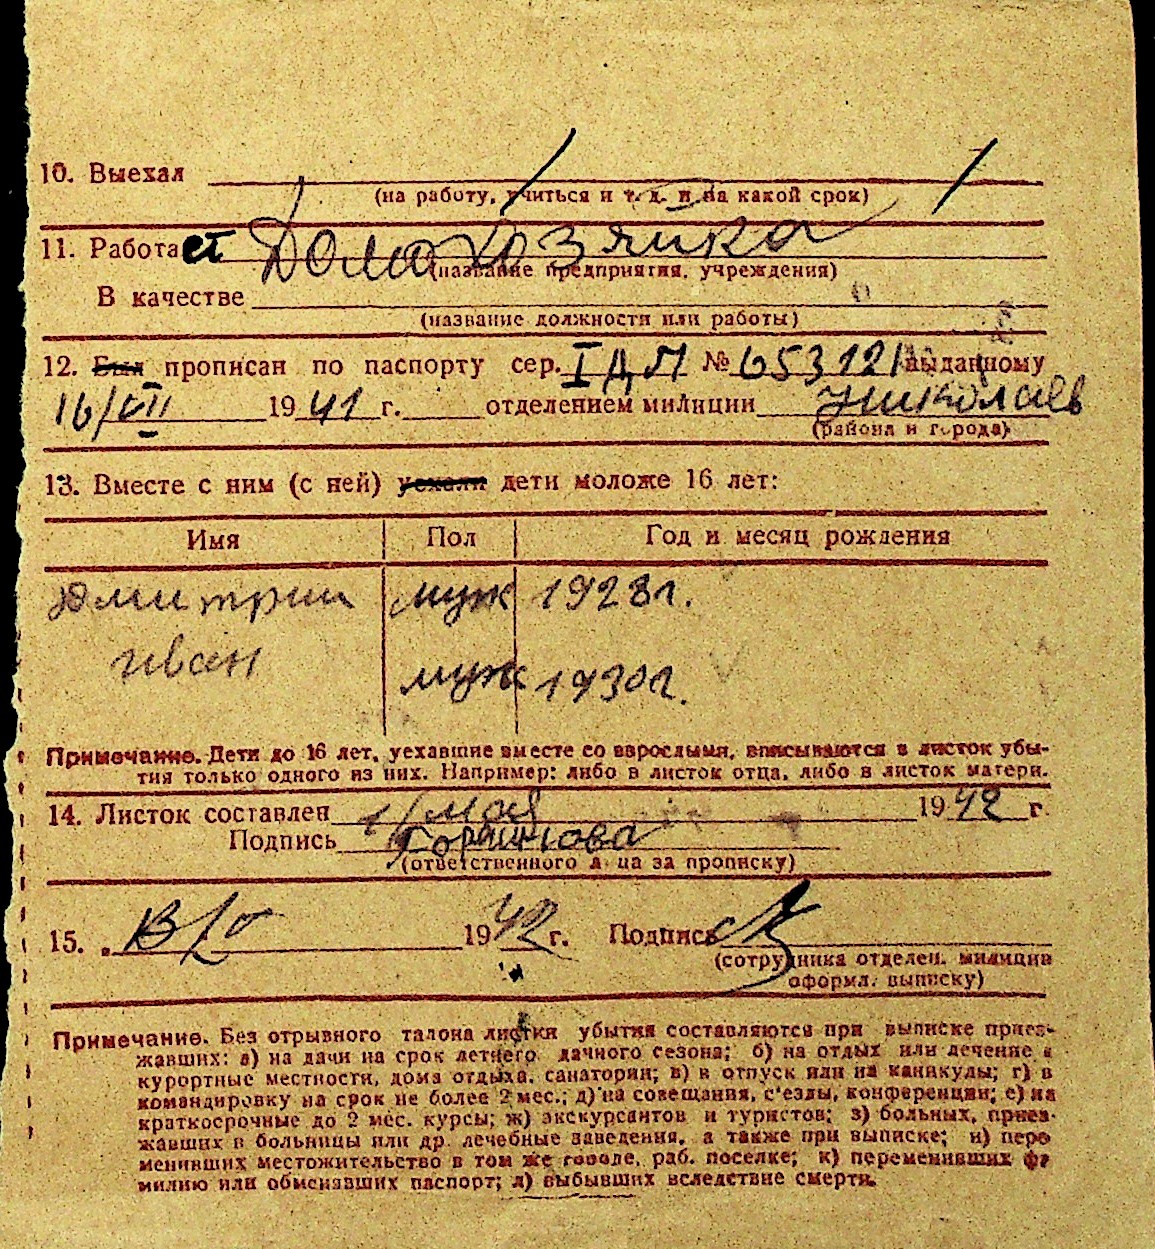 10. Выехал
(на работу, учиться и т. д. и на какой срок)
11. Работает Домохозяйка
(название предприятия, учреждения)
В качестве
(название должности или работы)
12. Был прописан по паспорту сер. I ДП № 653121 выданному
16/VII 1941 г. отделением милиции Николаев
(района и города)
13. Вместе с ним (с ней) уехали дети моложе 16 лет:
Имя Пол Год и месяц рождения
Дмитрий муж 1928 г.
Иван муж 1930 г.
Примечание. Дети до 16 лет, уехавшие вместе со взрослыми, вписываются в листок убы-
тия только одного из них. Например: либо в листок отца, либо в листок матери.
14. Листок составлен 1/мая 1942 г.
Подпись
(ответственного лица за прописку)
15. 1942 г. Подпись
(сотрудника отделен. милиции
оформл. выписку)
Примечание. Без отрывного талона листки убытия составляются при выписке приез-
жавших: а) на дачи на срок летнего дачного сезона; б) на отдых или лечение в
курортные местности, дома отдыха, санатории; в) в отпуск или на каникулы; г) в
командировку на срок не более 2 мес.; д) на совещания, с'езды, конференции; е) на
краткосрочные до 2 мес. курсы; ж) экскурсантов и туристов; з) больных, приез-
жавших в больницы или др. лечебные заведения, а также при выписке; и) пере
менивших местожительство в том же городе, раб. поселке; к) переменивших фа
милию или обменявших паспорт; л) выбывших вследствие смерти.